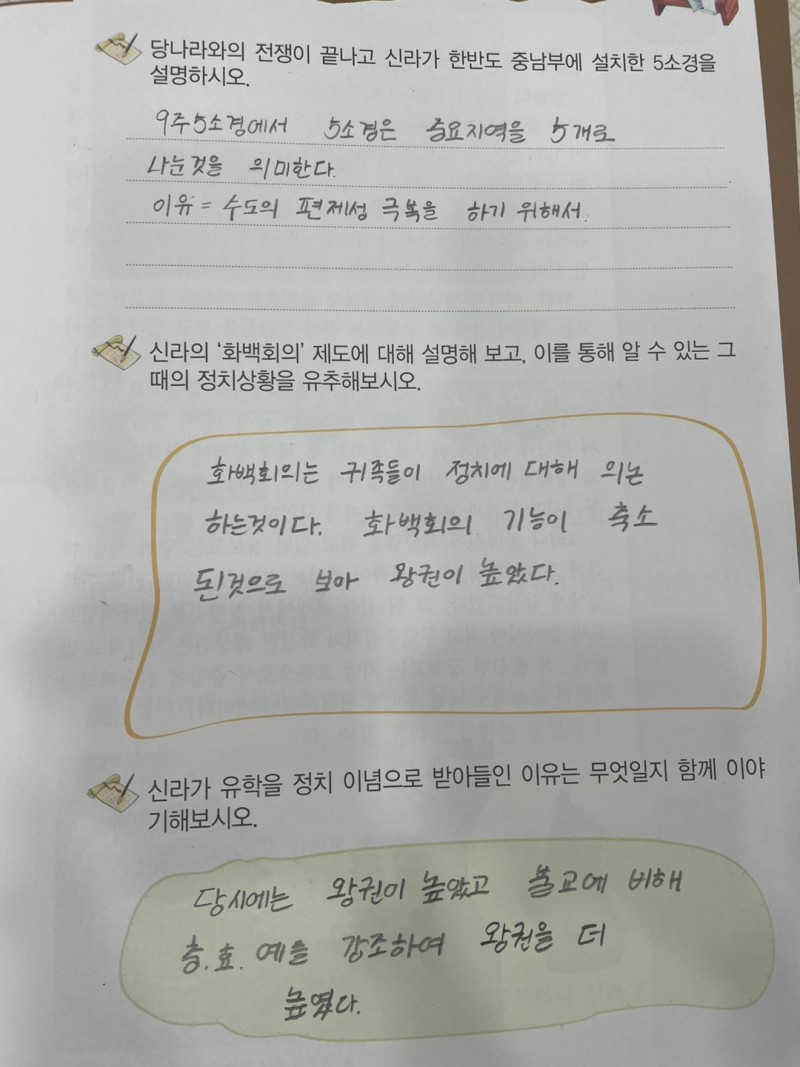 당나라와의 전쟁이 끝나고 신라가 한반도 중남부에 설치한 5소경을
설명하시오.
9주5소경에서 5소경은 중요지역을 5개로
나눈것을 의미한다.
이유 = 수도의 편제성 극복을 하기 위해서.
신라의 ‘화백회의’ 제도에 대해 설명해 보고, 이를 통해 알 수 있는 그
때의 정치상황을 유추해보시오.
화백회의는 귀족들이 정치에 대해 의논
하는것이다. 화백회의 기능이 축소
된것으로 보아 왕권이 높았다.
신라가 유학을 정치 이념으로 받아들인 이유는 무엇일지 함께 이야
기해보시오.
당시에는 왕권이 높았고 불교에 비해
충.효.예을 강조하여 왕권을 더
높였다.